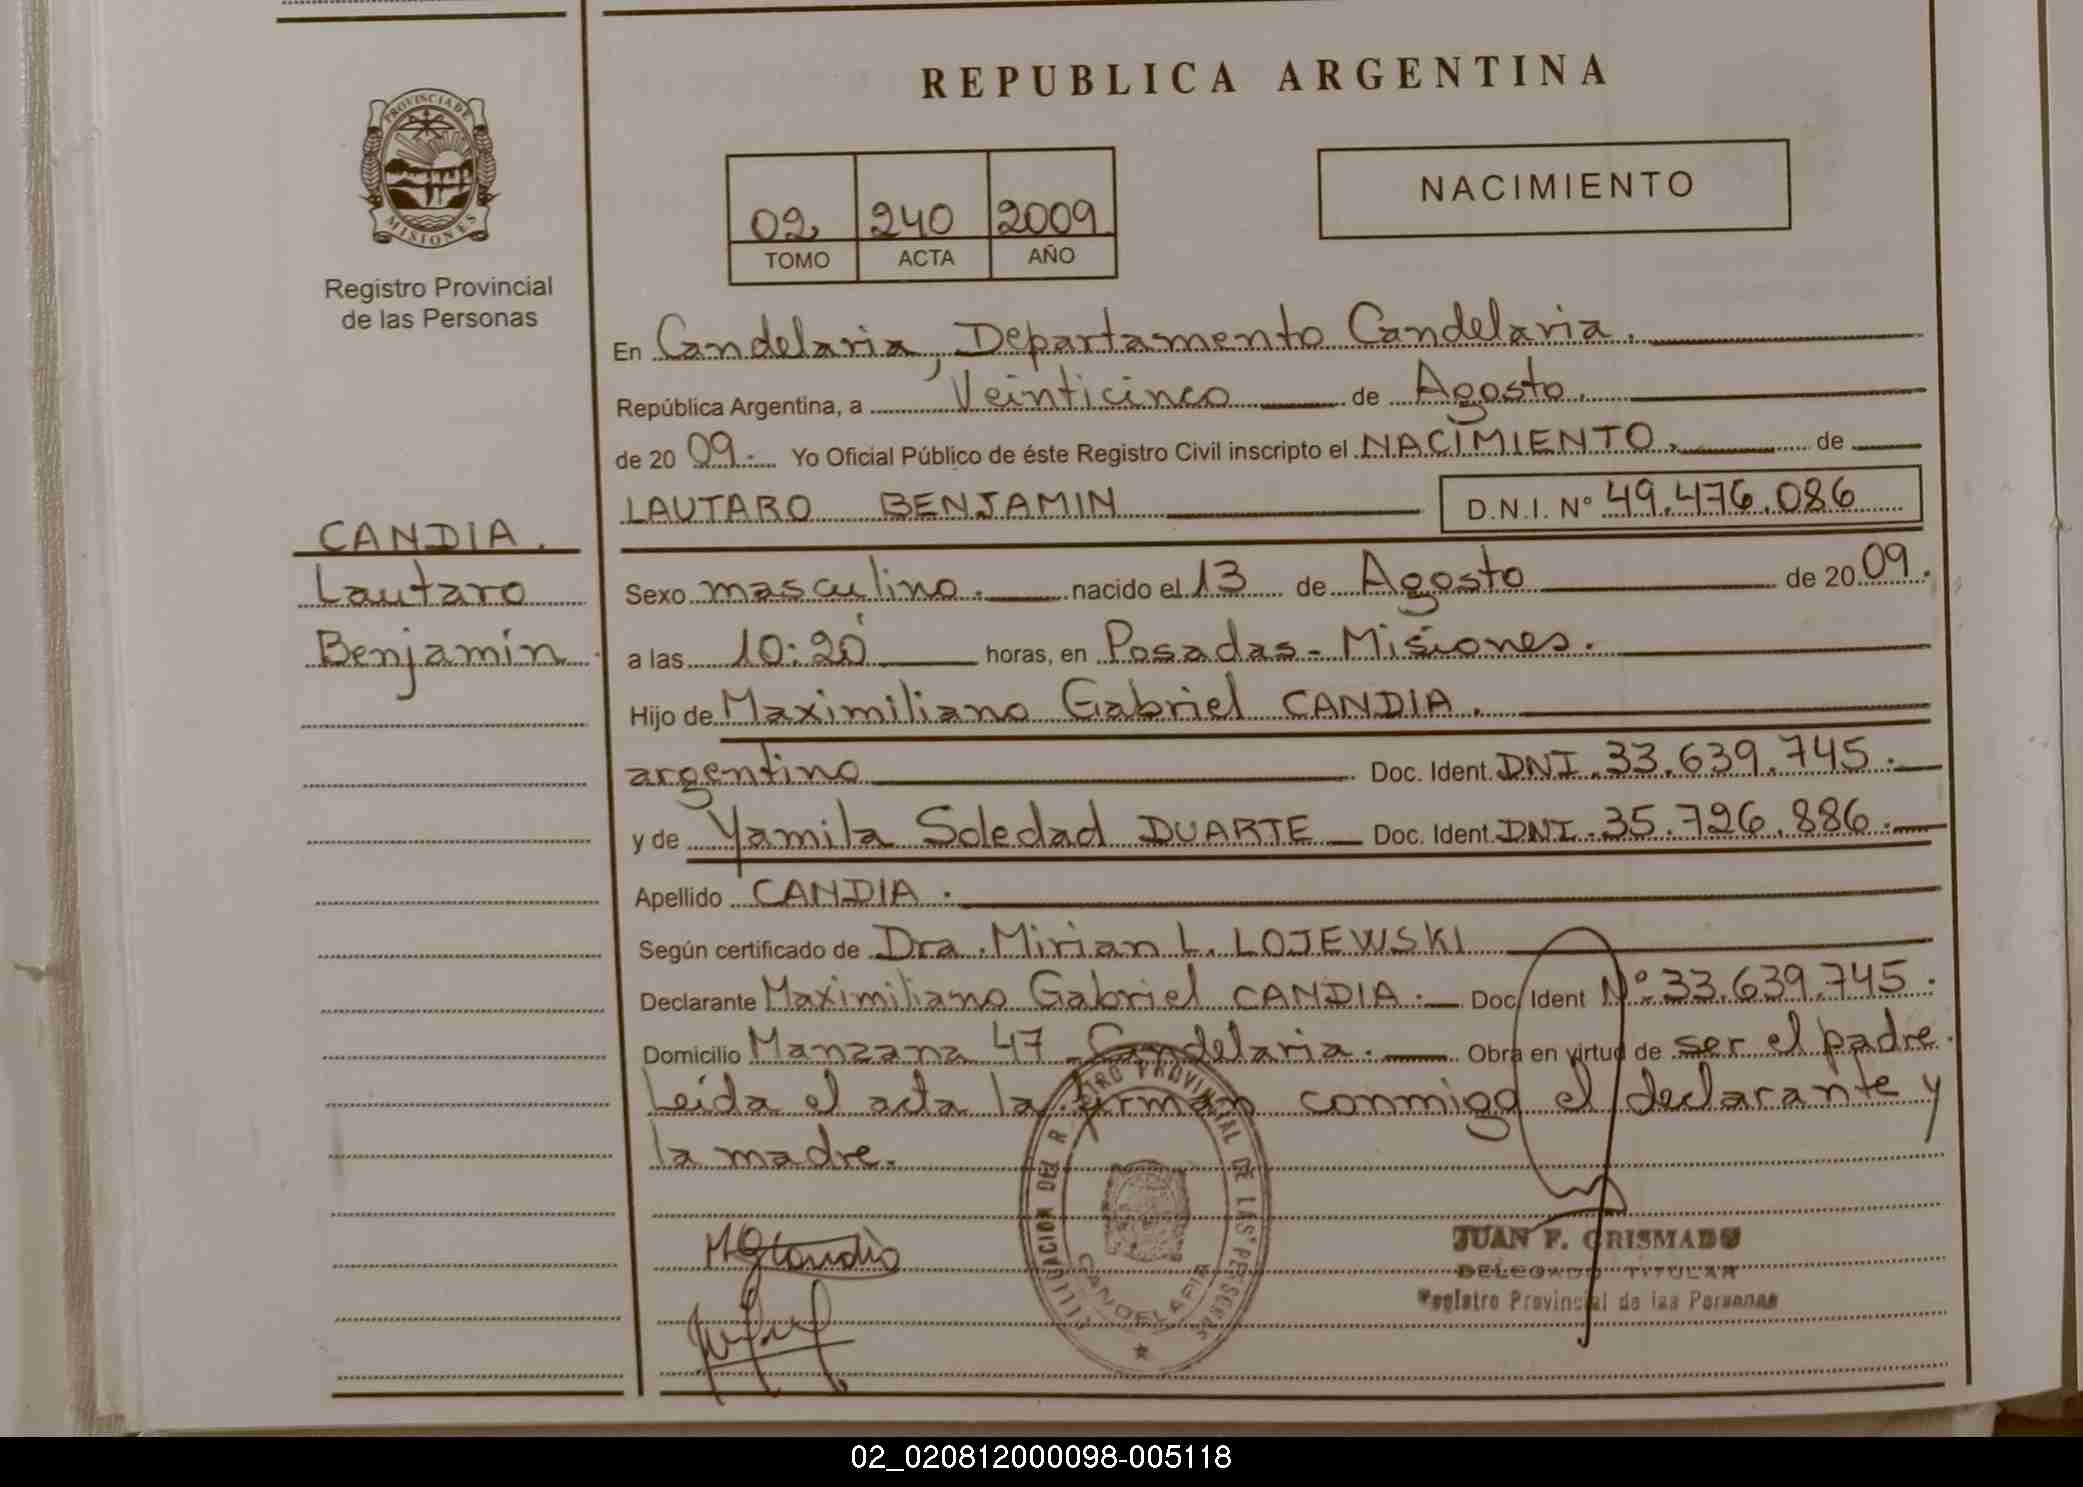 REPUBLICA ARGENTINA
PROVINCIA DE MISIONES
Registro Provincial
de las Personas
02 240 2009
TOMO ACTA AÑO
NACIMIENTO
En Candelaria, Departamento Candelaria.
República Argentina, a Veinticinco de Agosto.
de 20 09. Yo Oficial Público de éste Registro Civil inscripto el NACIMIENTO. de
LAUTARO BENJAMIN D.N.I. Nº 49.476.086
CANDIA.
Lautaro
Benjamín.
Sexo masculino. nacido el 13 de Agosto de 20 09.
a las 10:20 horas, en Posadas - Misiones.
Hijo de Maximiliano Gabriel CANDIA.
argentino Doc. Ident. DNI. 33.639.745.
y de Yamila Soledad DUARTE Doc. Ident. DNI. 35.726.886.
Apellido CANDIA.
Según certificado de Dra. Mirian L. LOJEWSKI
Declarante Maximiliano Gabriel CANDIA. Doc. Ident Nº 33.639.745.
Domicilio Manzana 47 - Candelaria. Obra en virtud de ser el padre.
Leída el acta la firman conmigo el declarante y
la madre.
DE LAS PERSONAS
CANDELARIA
JUAN F. GRISMADO
DELEGADO TITULAR
Registro Provincial de las Personas
02_020812000098-005118